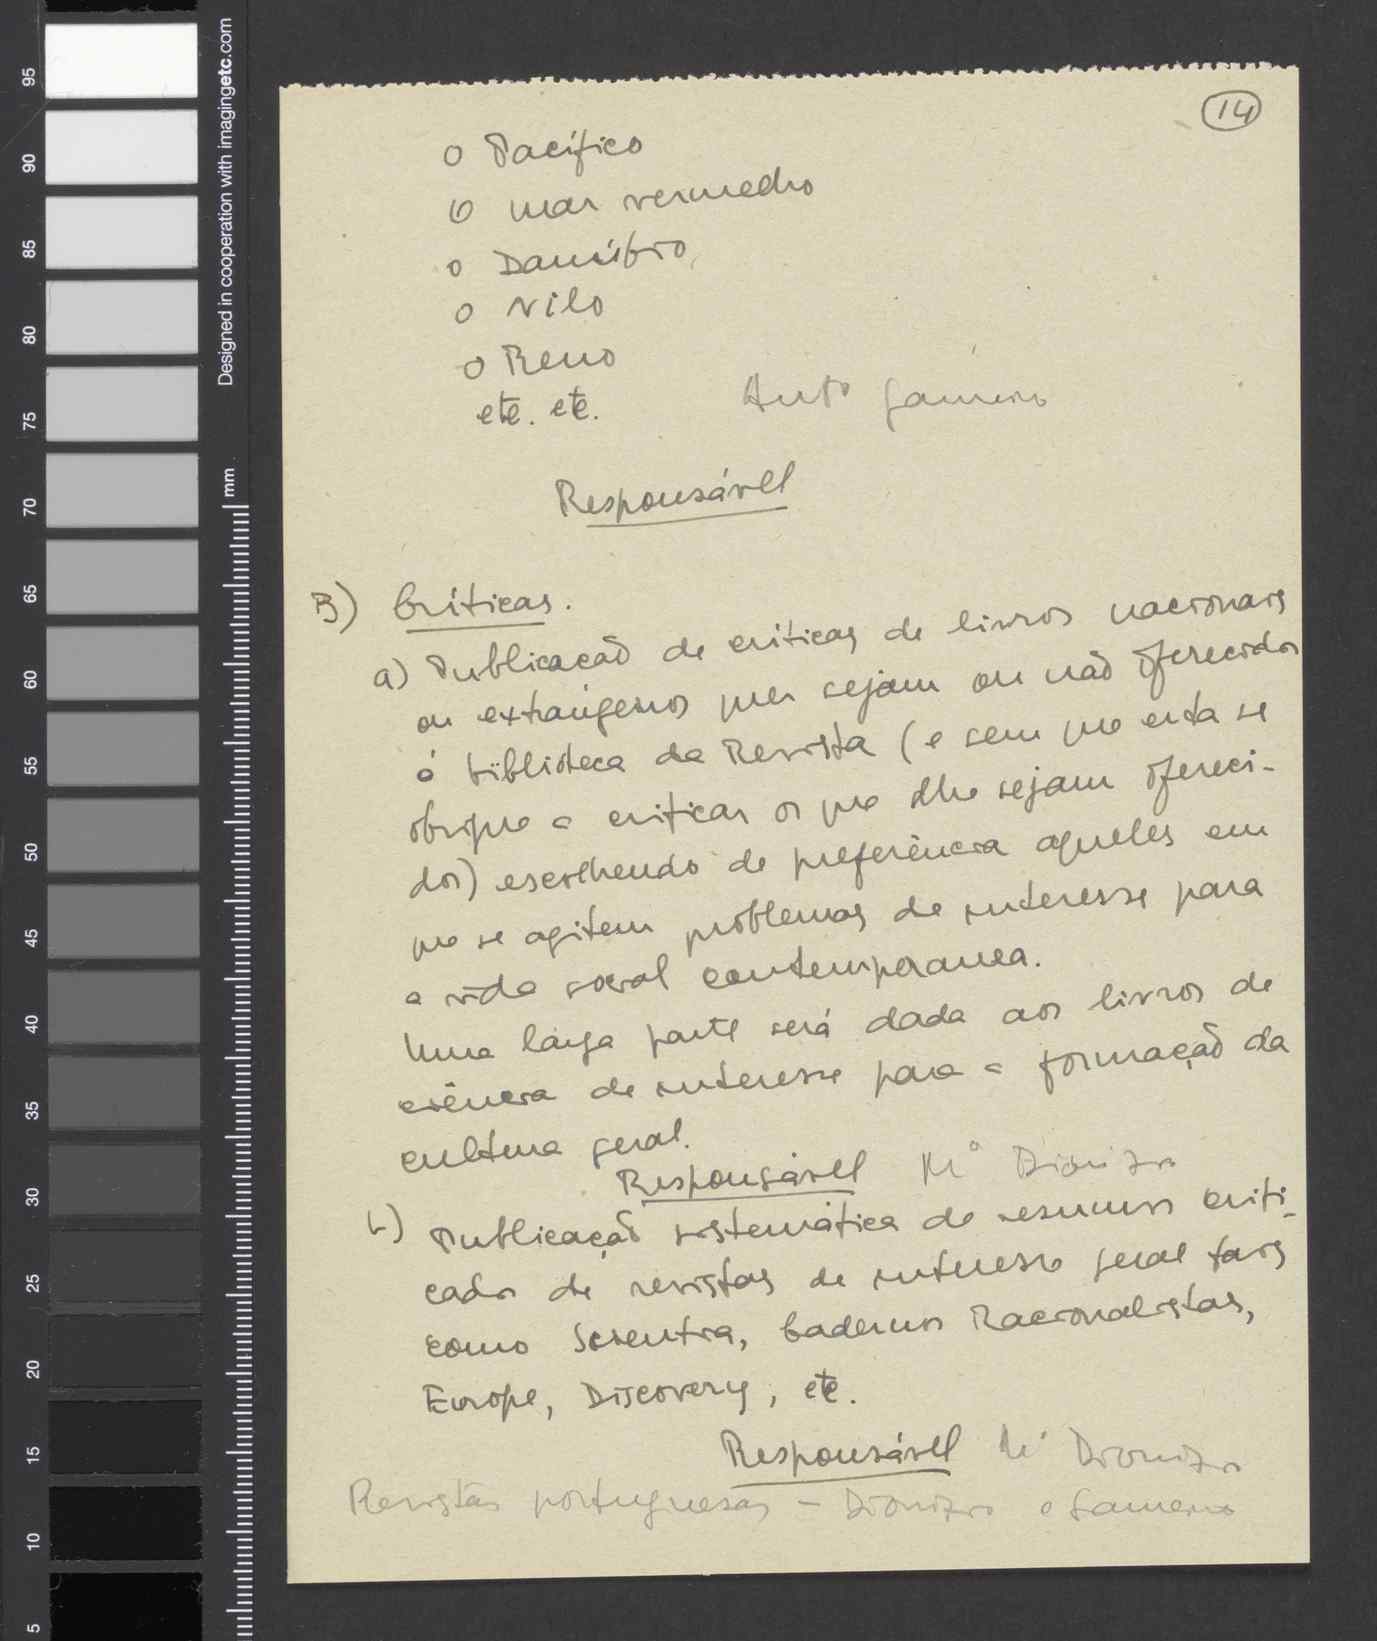 14
o Pacífico
o mar vermelho
o Danúbio
o Nilo
o Reno
etc. etc.
Responsável
B) Críticas.
a) Publicação de críticas de livros nacionais
ou extrangeiros quer sejam ou não oferecidos
á biblioteca da Revista (e sem que esta se
obrigue a criticar os que lhe sejam ofereci-
dos) escolhendo de preferência aqueles em
que se agitem problemas de interesse para
a vida social contemporanea.
Uma larga parte será dada aos livros de
ciência de interesse para a formação da
cultura geral.
Responsável Mº Dionizio
b) Publicação sistemática de resumos criti-
cados de revistas de interesse geral tais
como Scientia, Cadernos Racionalistas,
Europe, Discovery, etc.
Responsável Mº Dionizio
Revistas portuguesas – Dionizio e Gameiro
95
90
85
80
75
70
65
60
55
50
45
40
35
30
25
20
15
10
5
Designed in cooperation with imagingetc.com
mm